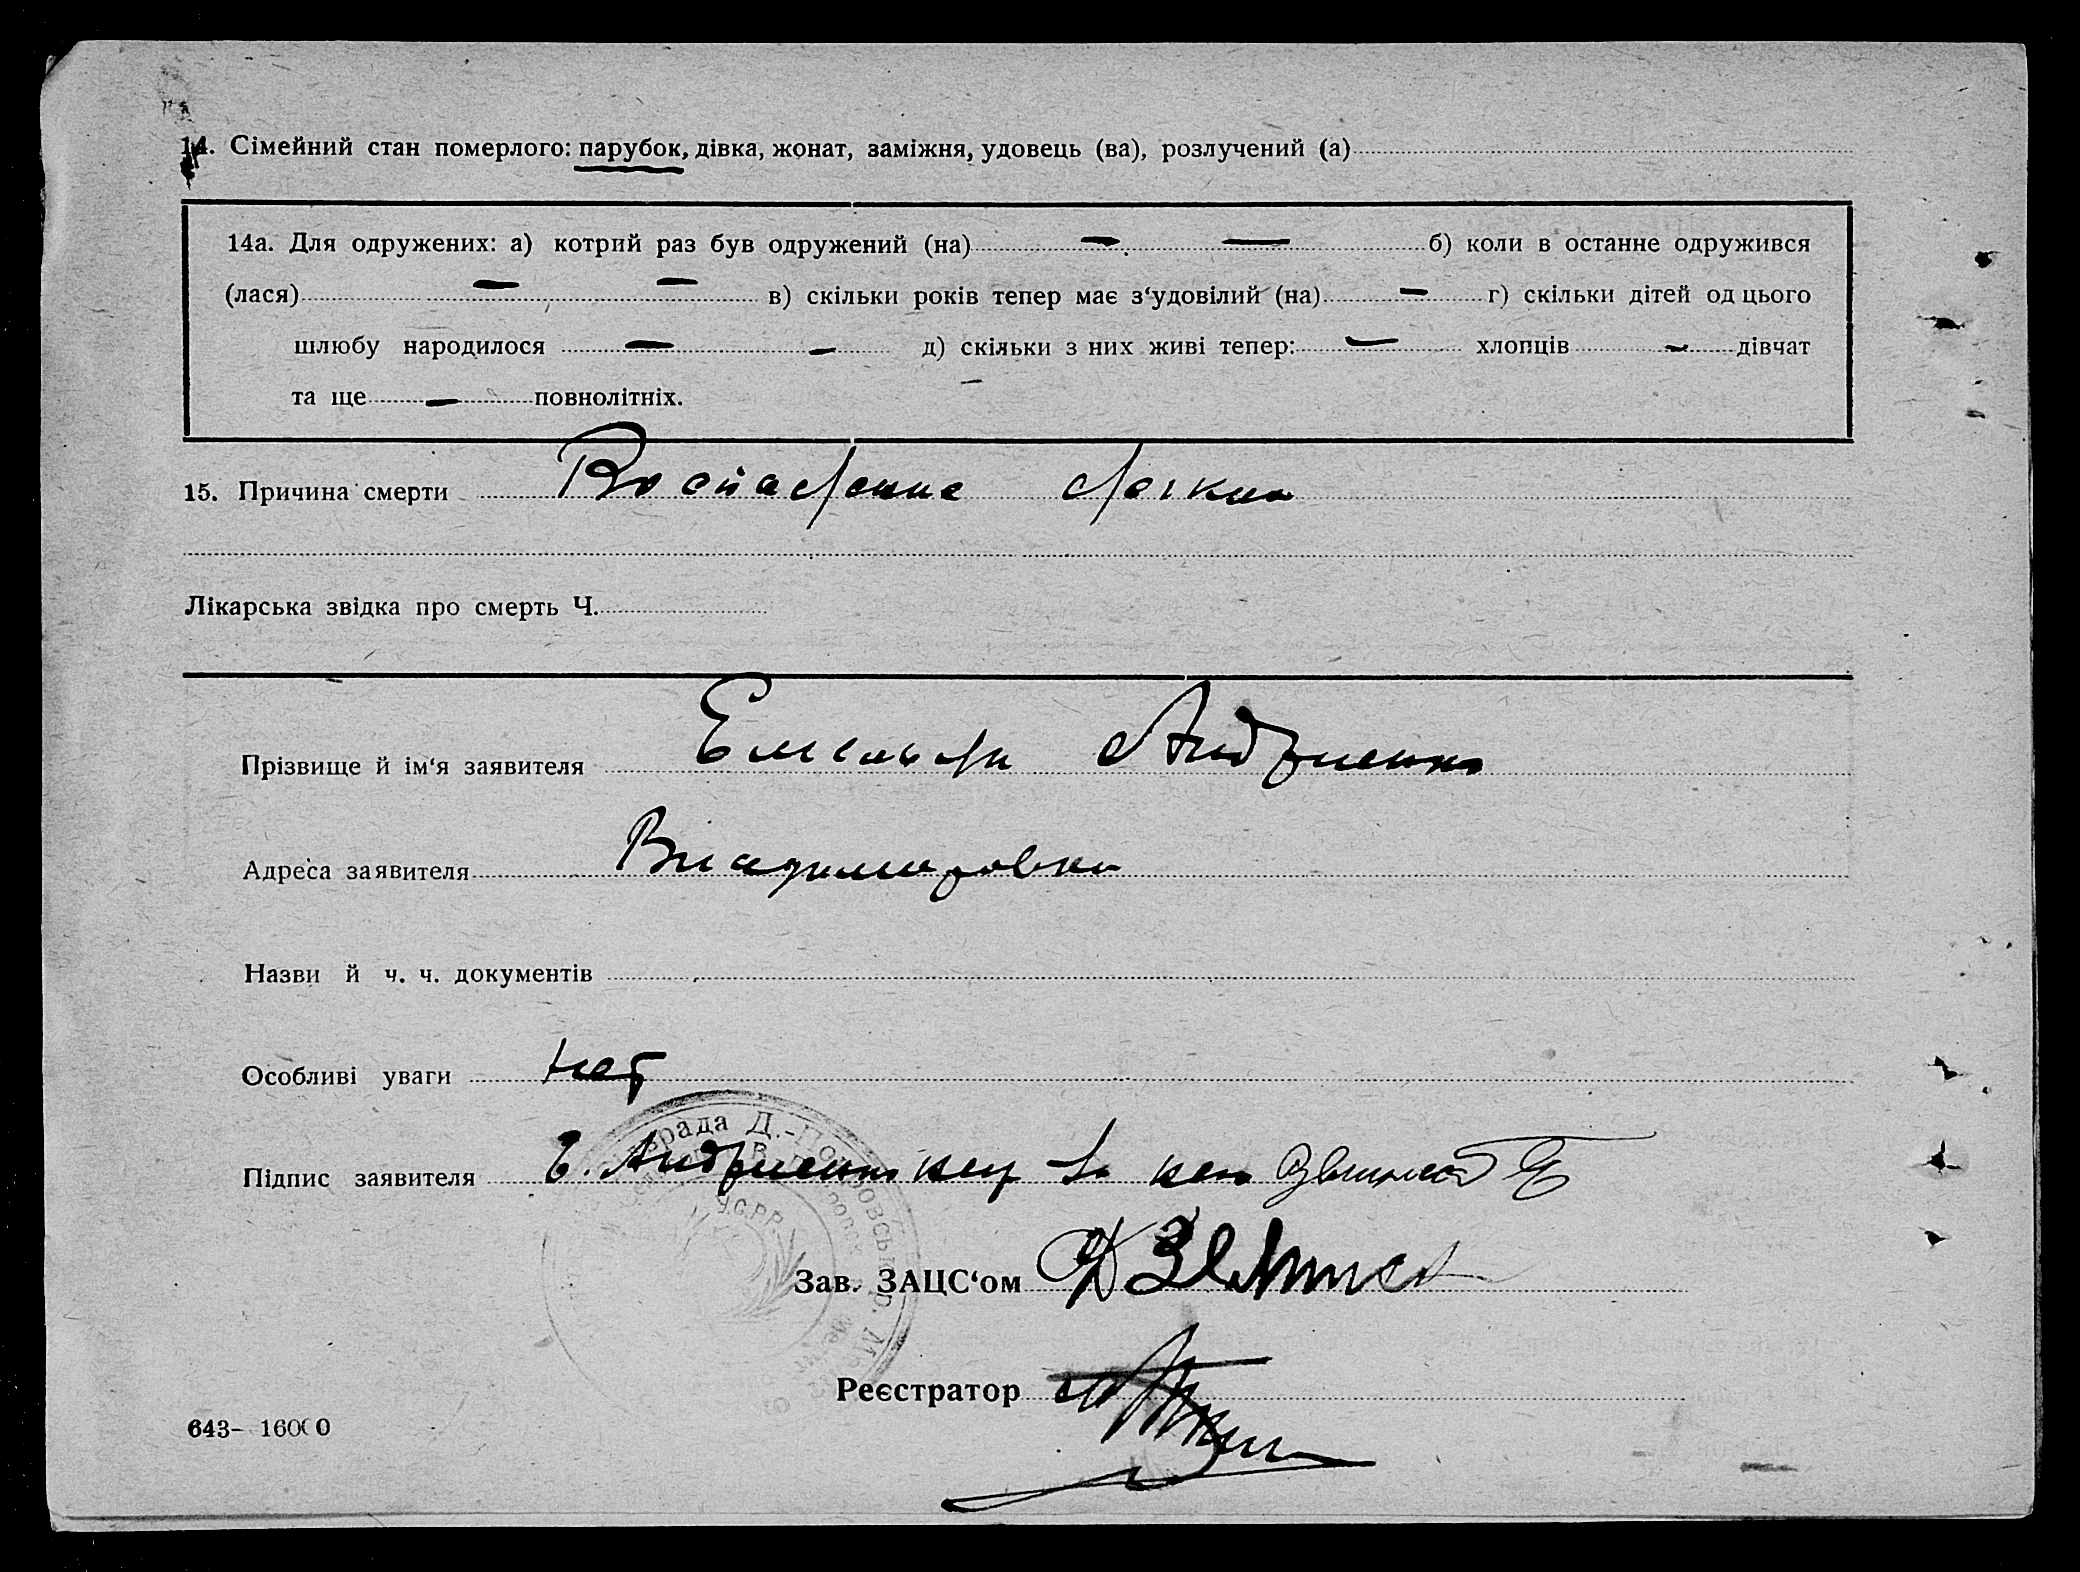 14. Сімейний стан померлого: парубок, дівка, жонат, заміжня, удовець (ва), розлучений (а)
14а. Для одружених: а) котрий раз був одружений (на) — — б) коли в останне одружився
(лася) — — в) скільки років тепер має з‘удовілий (на) — г) скільки дітей од цього
шлюбу народилося — — д) скільки з них живі тепер: — хлопців — дівчат
та ще — повнолітніх.
15. Причина смерти Воспаление легких
Лікарська звідка про смерть Ч.
Прізвище й ім‘я заявителя Емельян Андриенко
Адреса заявителя Владимировка
Назви й ч. ч. документів
Особливі уваги нет
Підпис заявителя Е. Андриенко
Зав. ЗАЦС‘ом
Реєстратор
643- 16000
У.С.Р.Р.